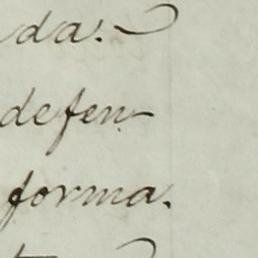 da.
defen-
forma.